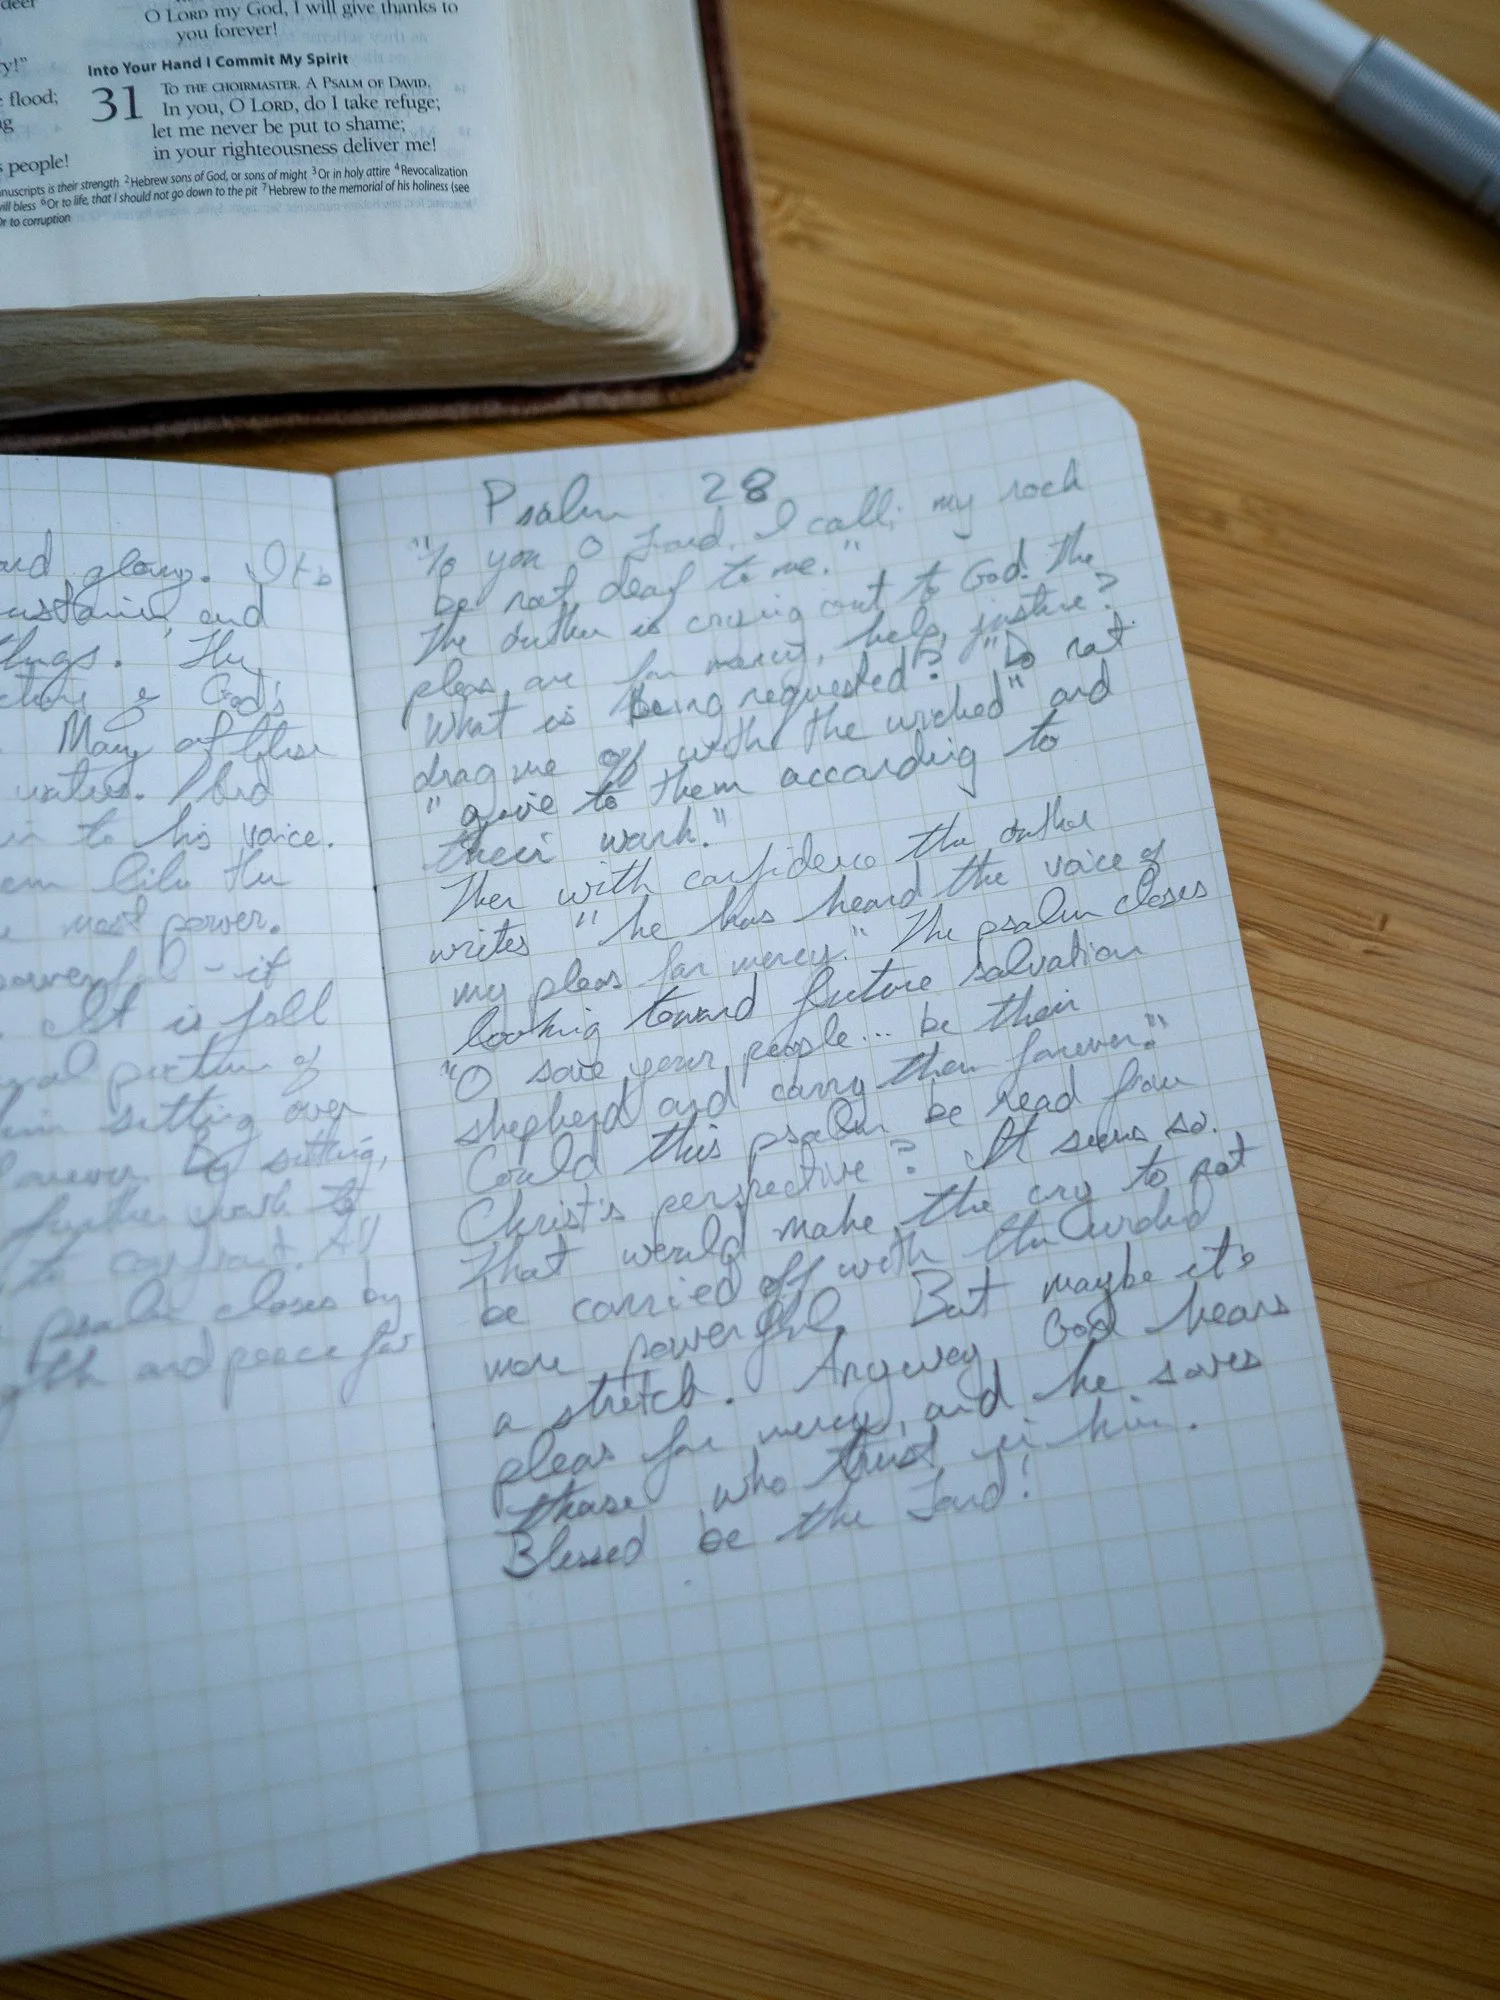 deer
O LORD my God, I will give thanks to
you forever!
y!"
flood;
s people!
Into Your Hand I Commit My Spirit
31 TO THE CHOIRMASTER. A PSALM OF DAVID.
In you, O LORD, do I take refuge;
let me never be put to shame;
in your righteousness deliver me!
nuscripts is their strength 2Hebrew sons of God, or sons of might 3Or in holy attire 4Revocalization
will bless 6Or to life, that I should not go down to the pit 7Hebrew to the memorial of his holiness (see
Or to corruption
and glory. It's
and
things. The
is God's
Many of these
waters. 
in to his voice.
like the
most power.
powerful - it
. It is full
picture of
him sitting over
forever. By sitting,
further work to
to 
psalm closes by
and peace for
Psalm 28
"To you O Lord, I call; my rock
be not deaf to me."
The author is crying out to God. The
pleas are for mercy, help, justice?
What is being requested? "Do not
drag me off with the wicked" and
"give to them according to
their work."
Then with confidence the author
writes "he has heard the voice of
my pleas for mercy." The psalm closes
looking toward future salvation
"O save your people... be their
shepherd and carry them forever."
Could this psalm be read from
Christ's perspective? It seems so.
That would make the cry to not
be carried off with the wicked
more powerful. But maybe it's
a stretch. Anyway, God hears
pleas for mercy, and he saves
those who trust in him.
Blessed be the Lord!